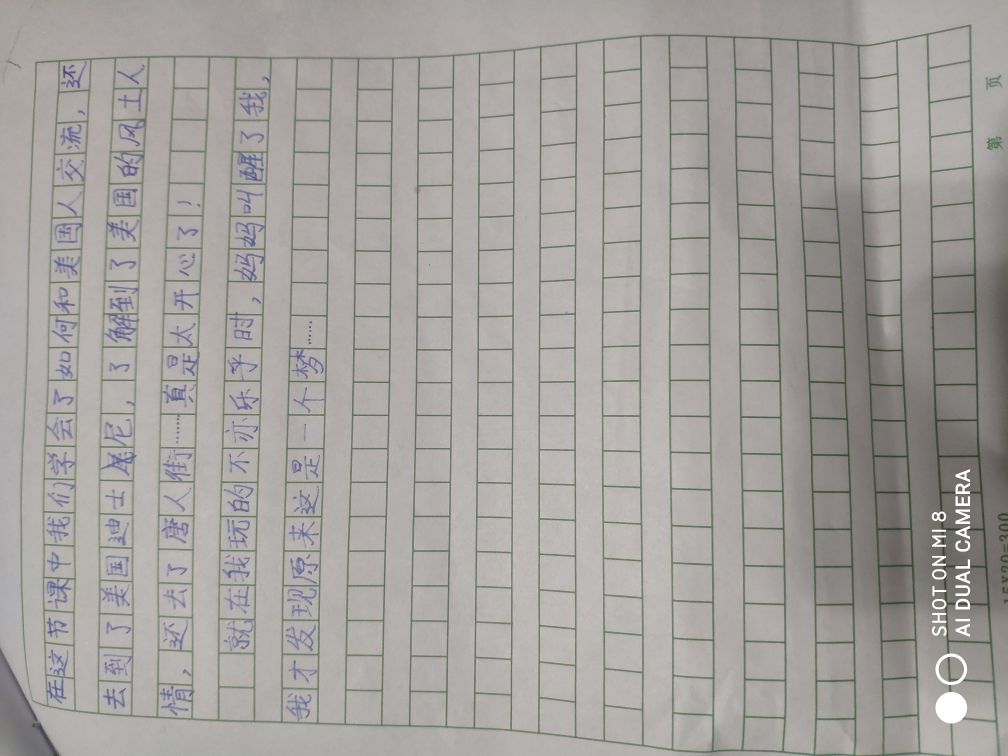 在这节课中我们学会了如何和美国人交流，还
去到了美国迪士尼，了解到了美国的风土人
情，还去了唐人街……真是太开心了！
就在我玩的不亦乐乎时，妈妈叫醒了我，
我才发现原来这是一个梦……
第 页
15×20=300
SHOT ON MI 8
AI DUAL CAMERA